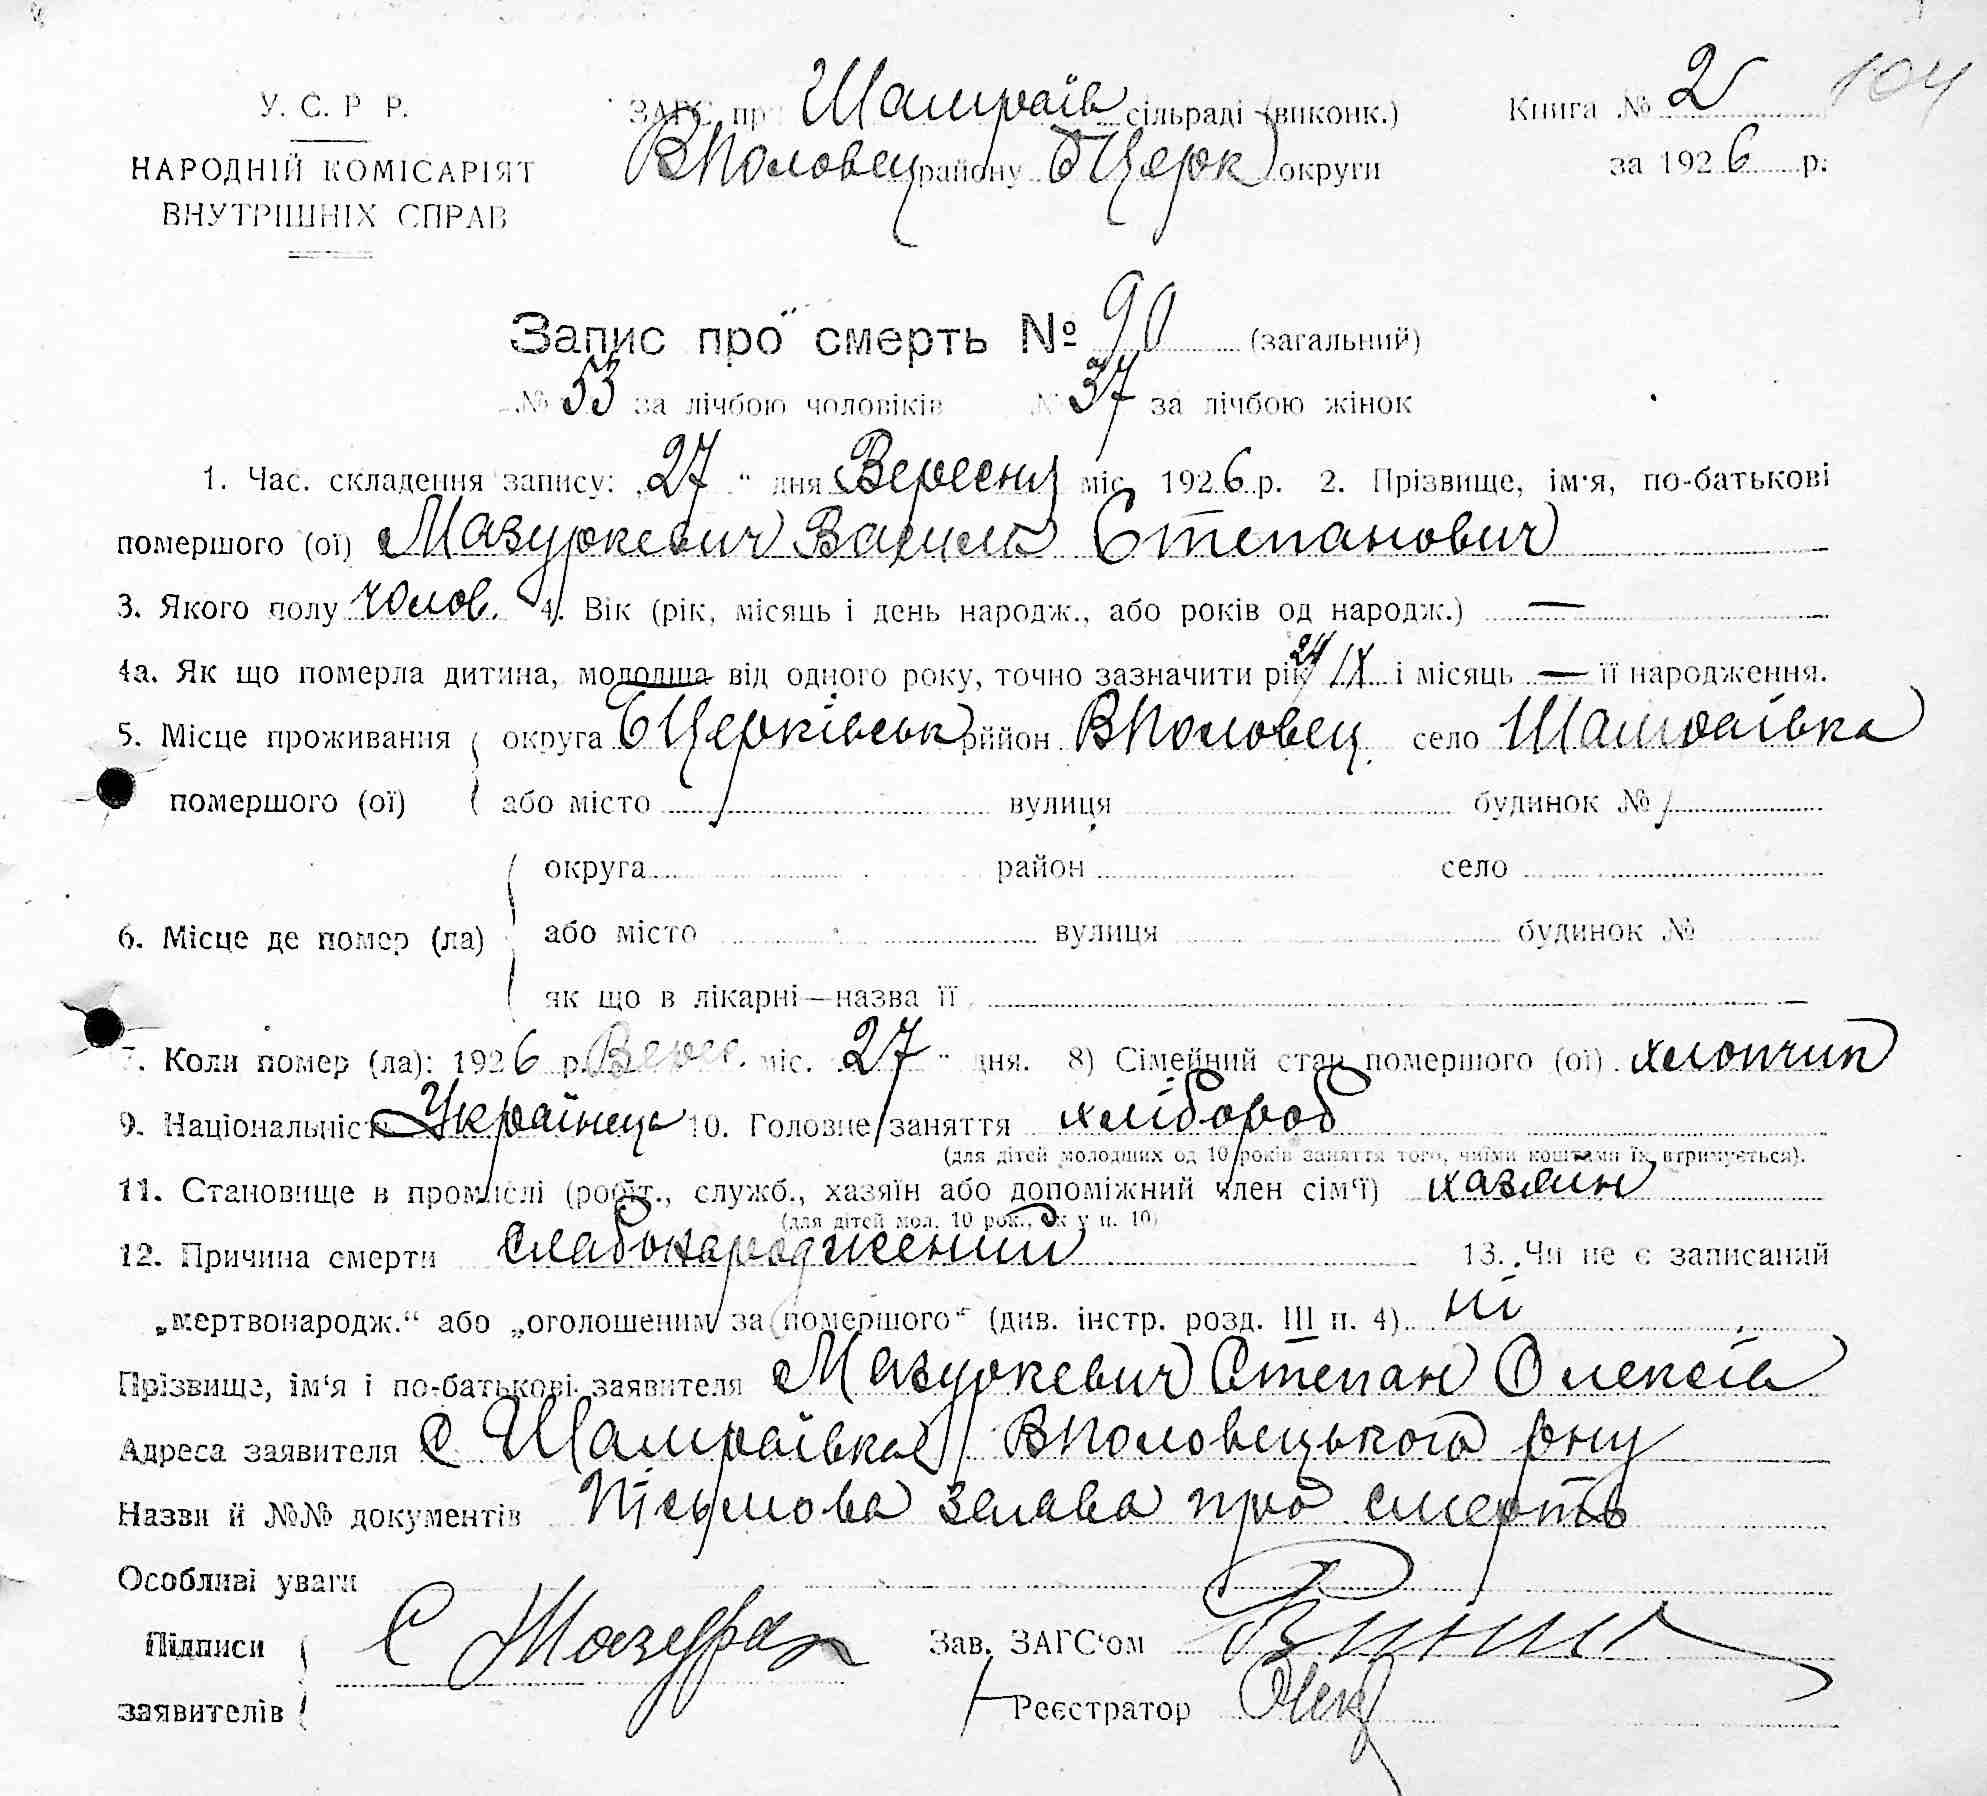 У. С. Р Р.
НАРОДНІЙ КОМІСАРІЯТ
ВНУТРІШНІХ СПРАВ
ЗАГС пр Шамраїв сільраді (виконк.)
ВПоловец району БЦерк округи
Книга № 2 104
за 1926 р.
Запис про смерть № 90 (загальний)
№ 53 за лічбою чоловіків № 37 за лічбою жінок
1. Час. складення запису: „27“ дня Вересня міс. 1926 р. 2. Прізвище, ім'я, по-батькові
помершого (ої) Мазуркевич Василь Степанович
3. Якого полу чолов. 4. Вік (рік, місяць і день народж., або років од народж.) —
4а. Як що померла дитина, молодша від одного року, точно зазначити рік 24/IX і місяць — її народження.
5. Місце проживання округа БЦерківськ район ВПоловец. село Шамраївка
помершого (ої) або місто вулиця будинок №
округа район село
6. Місце де помер (ла) або місто вулиця будинок №
як що в лікарні—назва її —
7. Коли помер (ла): 1926 р. Верес. міс. 27 " дня. 8) Сімейний стан помершого (ої) хлопчик
9. Національність Українець 10. Головне заняття хлібороб
(для дітей молодших од 10 років заняття того, чиїми коштами їх втримується).
11. Становище в промислі (робіт., служб., хазяїн або допоміжний член сім'ї) хазяин
(для дітей мол. 10 рок., як у п. 10)
12. Причина смерти слабонароджений 13. Чи не є записаний
„мертвонародж.“ або „оголошеним за помершого“ (див. інстр. розд. III п. 4) ні
Прізвище, ім'я і по-батькові заявителя Мазуркевич Степан Олексів
Адреса заявителя С Шамраївка ВПоловецького рну
Назви й №№ документів Пісьмова заява про смерть
Особливі уваги
Підписи С Мазур Зав. ЗАГС'ом
заявителів Реєстратор